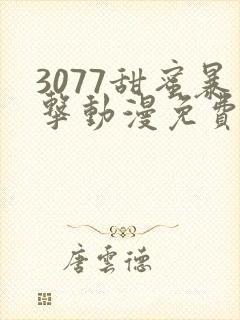 3077甜蜜暴
擊動漫免費
唐雲德